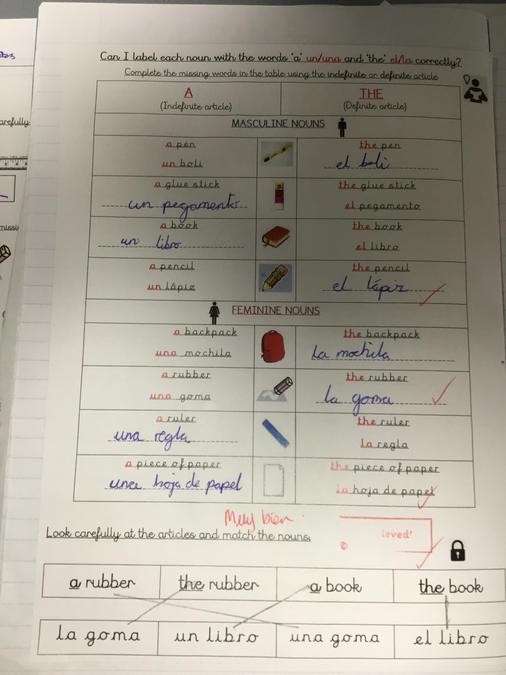 Can I label each noun with the words 'a' un/una and 'the' el/la correctly?
Complete the missing words in the table using the indefinite or definite article
A THE
(Indefinite article) (Definite article)
MASCULINE NOUNS
a pen the pen
un boli el boli
a glue stick the glue stick
un pegamento el pegamento
a book the book
un libro el libro
a pencil the pencil
un lápiz el lápiz
FEMININE NOUNS
a backpack the backpack
una mochila La mochila
a rubber the rubber
una goma la goma
a ruler the ruler
una regla La regla
a piece of paper the piece of paper
una hoja de papel la hoja de papel
Muy bien
Look carefully at the articles and match the nouns.
a rubber the rubber a book the book
la goma un libro una goma el libro